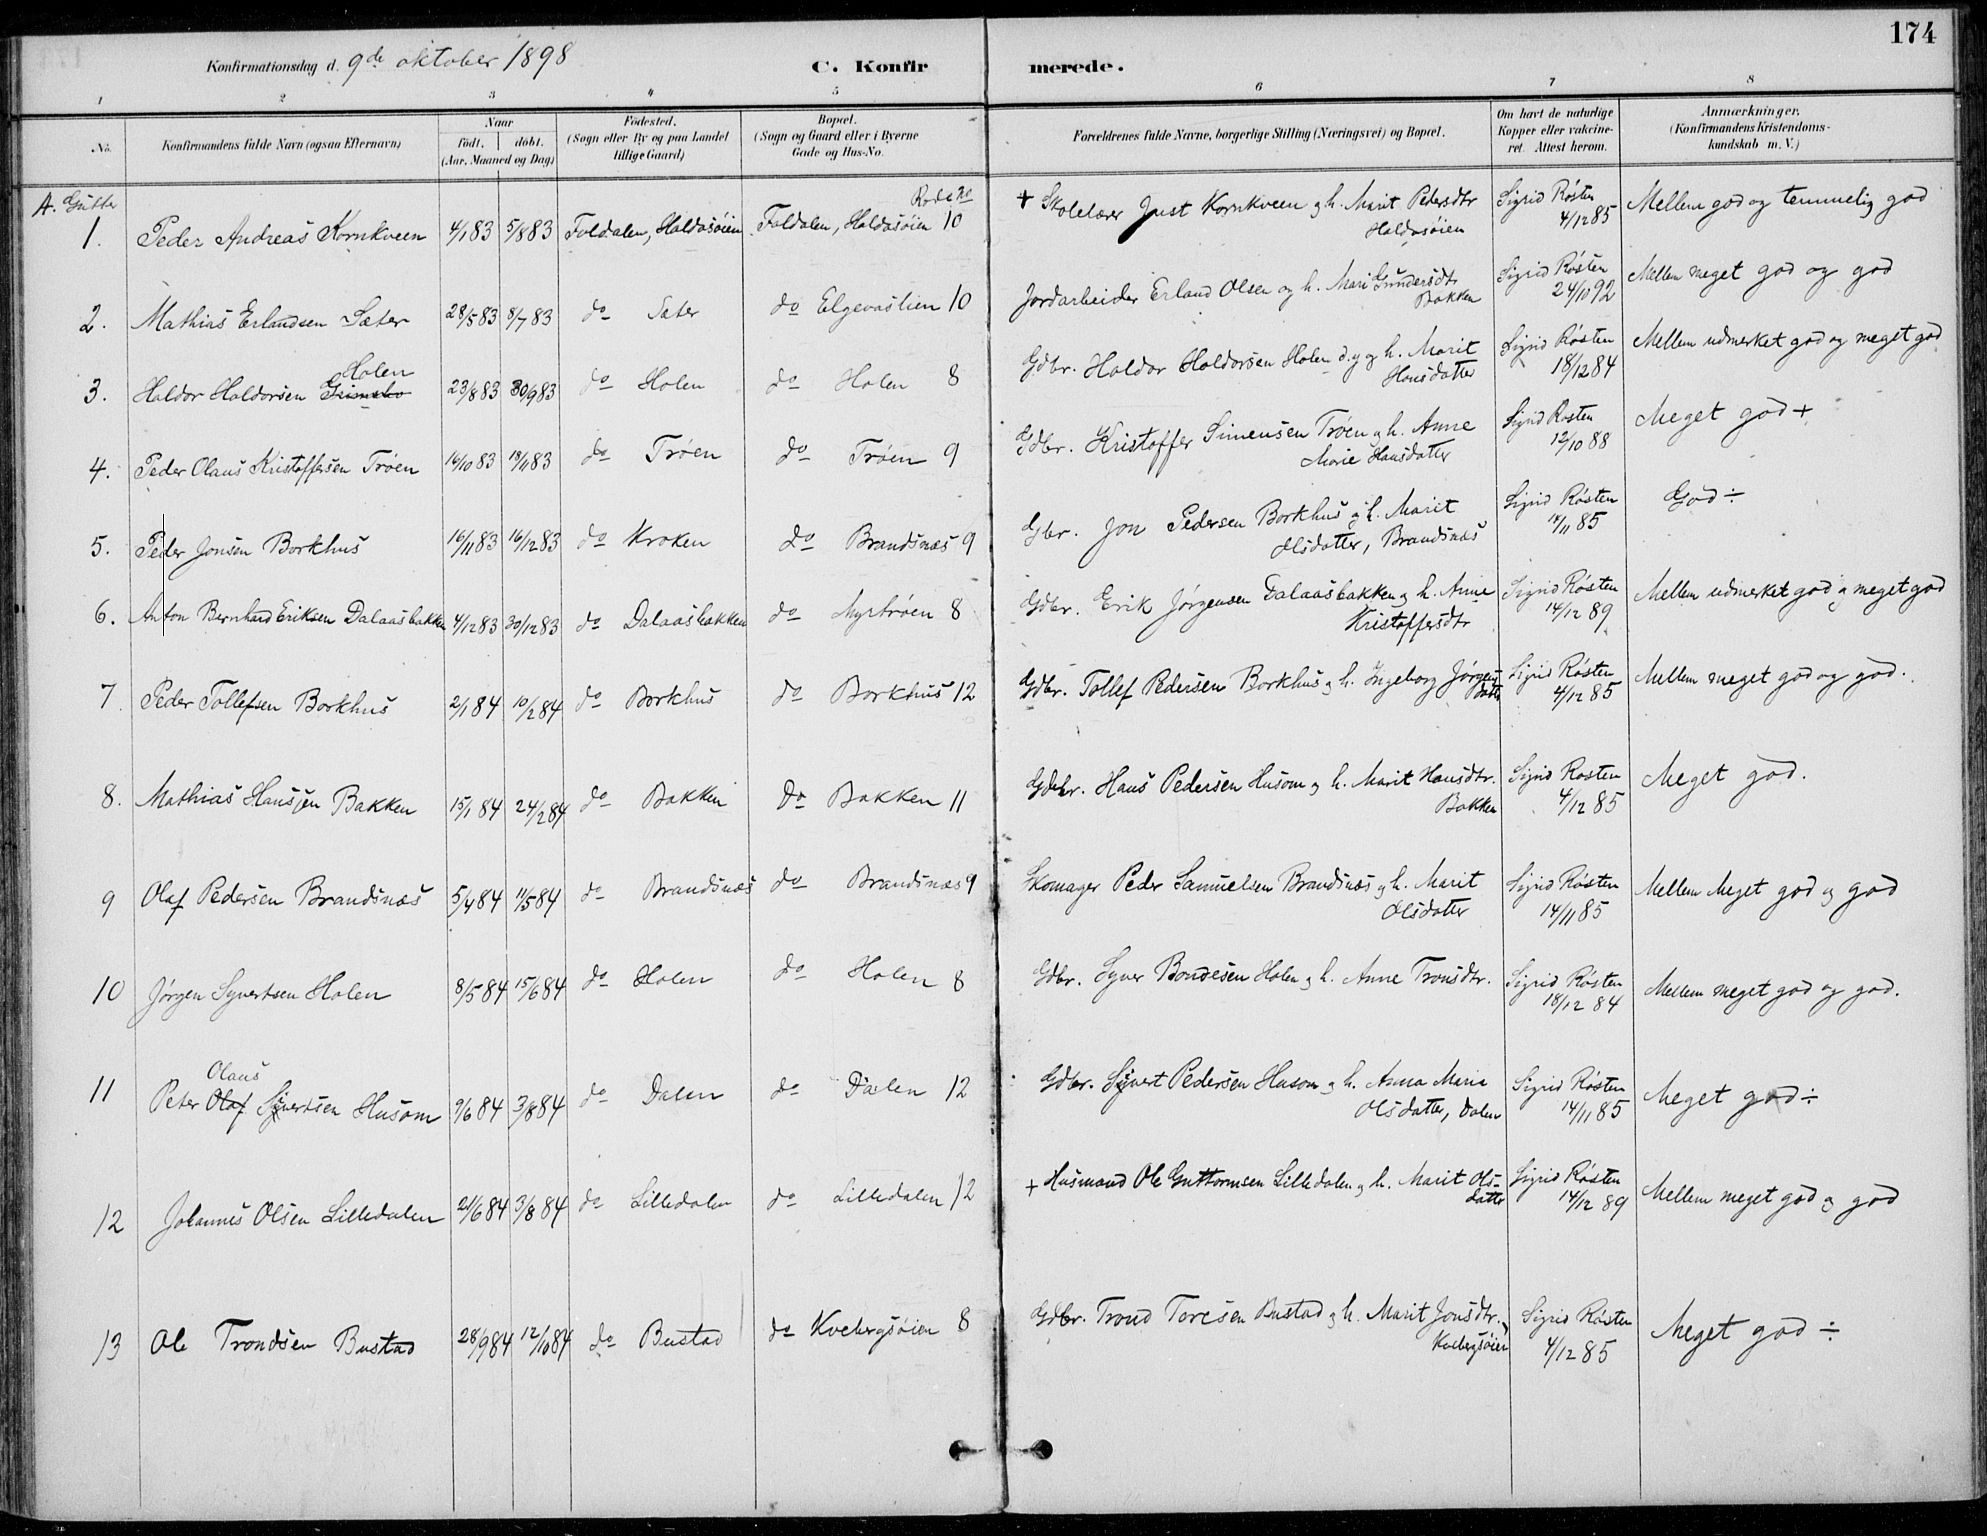 174
Konfirmationsdag d. 9de oktober 1898
C. Konfirmerede.
1 2 3 4 5 6 7 8
No. Konfirmandens fulde Navn (ogsaa Efternavn) Naar født. døbt. (Aar, Maaned og Dag) Fødested. (Sogn eller By og paa Landet tillige Gaard) Bopæl. (Sogn og Gaard eller i Byerne Gade og Hus-No. Forældrenes fulde Navne, borgerlige Stilling (Næringsvei) og Bopæl. Om havt de naturlige Kopper eller vakcineret. Attest herom. Anmærkninger. (Konfirmandens Kristendomskundskab m. V.)
A. Gutter
Rode No
1. Peder Andreas Kornkveen 4/1 83 5/8 83 Foldalen, Haldasøien Foldalen, Haldasøien 10 + Skolelærer Just Kornkveen og h. Marit Pedersdtr Haldasøien Sigrid Røsten 4/12 85 Mellem god og temmelig god
2. Mathias Erlandsen Sæter 28/5 83 8/7 83 do Sæter do Elgevastien 10 Jordarbeider Erland Olsen og h. Mari Gundersdtr Bakken Sigrid Røsten 24/10 92 Mellem meget god og god
3. Haldor Haldorsen Holen 23/8 83 30/9 83 do Holen do Holen 8 Gdbr. Haldor Haldorsen Holen d.y og h. Marit Hansdatter Sigrid Røsten 18/12 84 Mellem udmerket god og meget god
4. Peder Olaus Kristoffersen Trøen 14/10 83 18/11 83 do Trøen do Trøen 9 Gdbr. Kristoffer Simensen Trøen og h. Anne Marie Hansdatter Sigrid Røsten 12/10 88 Meget god +
5. Peder Jonsen Borkhus 16/11 83 16/12 83 do Kroken do Brandsnæs 9 Gbr. Jon Pedersen Borkhus og h. Marit Olsdatter, Brandsnæs Sigrid Røsten 14/11 85 God ÷
6. Anton Bernhard Eriksen Dalaasbakken 4/12 83 30/12 83 do Dalaasbakken do Myrtrøen 8 Gdbr. Erik Jørgensen Dalaasbakken og h. Anne Kristoffersdtr Sigrid Røsten 14/12 89 Mellem udmerket god og meget god
7. Peder Tollefsen Borkhus 2/1 84 10/2 84 do Borkhus do Borkhus 12 Gdbr. Tollef Pedersen Borkhus og h. Ingeborg Jørgensdatter Sigrid Røsten 4/12 85 Mellem meget god og god.
8. Mathias Hansen Bakken 15/1 84 24/2 84 do Bakken do Bakken 11 Gdbr. Hans Pedersen Husom og h. Marit Hansdtr. Bakken Sigrid Røsten 4/12 85 Meget god.
9 Olaf Pedersen Brandsnæs 5/4 84 11/5 84 do Brandsnæs do Brandsnæs 9 Skomager Peder Samuelsen Brandsnæs og h. Marit Olsdatter Sigrid Røsten 14/11 85 Mellem Meget god og god
10 Jørgen Syvertsen Holen 8/5 84 15/6 84 do Holen do Holen 8 Gdbr. Syver Bondesen Holen og h. Anne Tronsdtr. Sigrid Røsten 18/12 84 Mellem meget god og god.
11 Peter Olaf Olaus Sivertsen Husom 9/6 84 3/8 84 do Dalen do Dalen 12 Gdbr. Sivert Pedersen Husom og h. Anna Maria Olsdatter, Dalen Sigrid Røsten 14/11 85 Meget god ÷
12 Johannes Olsen Lilledalen 21/6 84 3/8 84 do Lilledalen do Lilledalen 12 + Husmand Ole Guttormsen Lilledalen og h. Marit Olsdatter Sigrid Røsten 14/12 89 Mellem meget god og god
13 Ole Trondsen Bustad 28/9 84 12/10 84 do Bustad do Kvebergsøien 8 Gdbr. Trond Toresen Bustad og h. Marit Jonsdtr. Kvebergsøien Sigrid Røsten 4/12 85 Meget god ÷